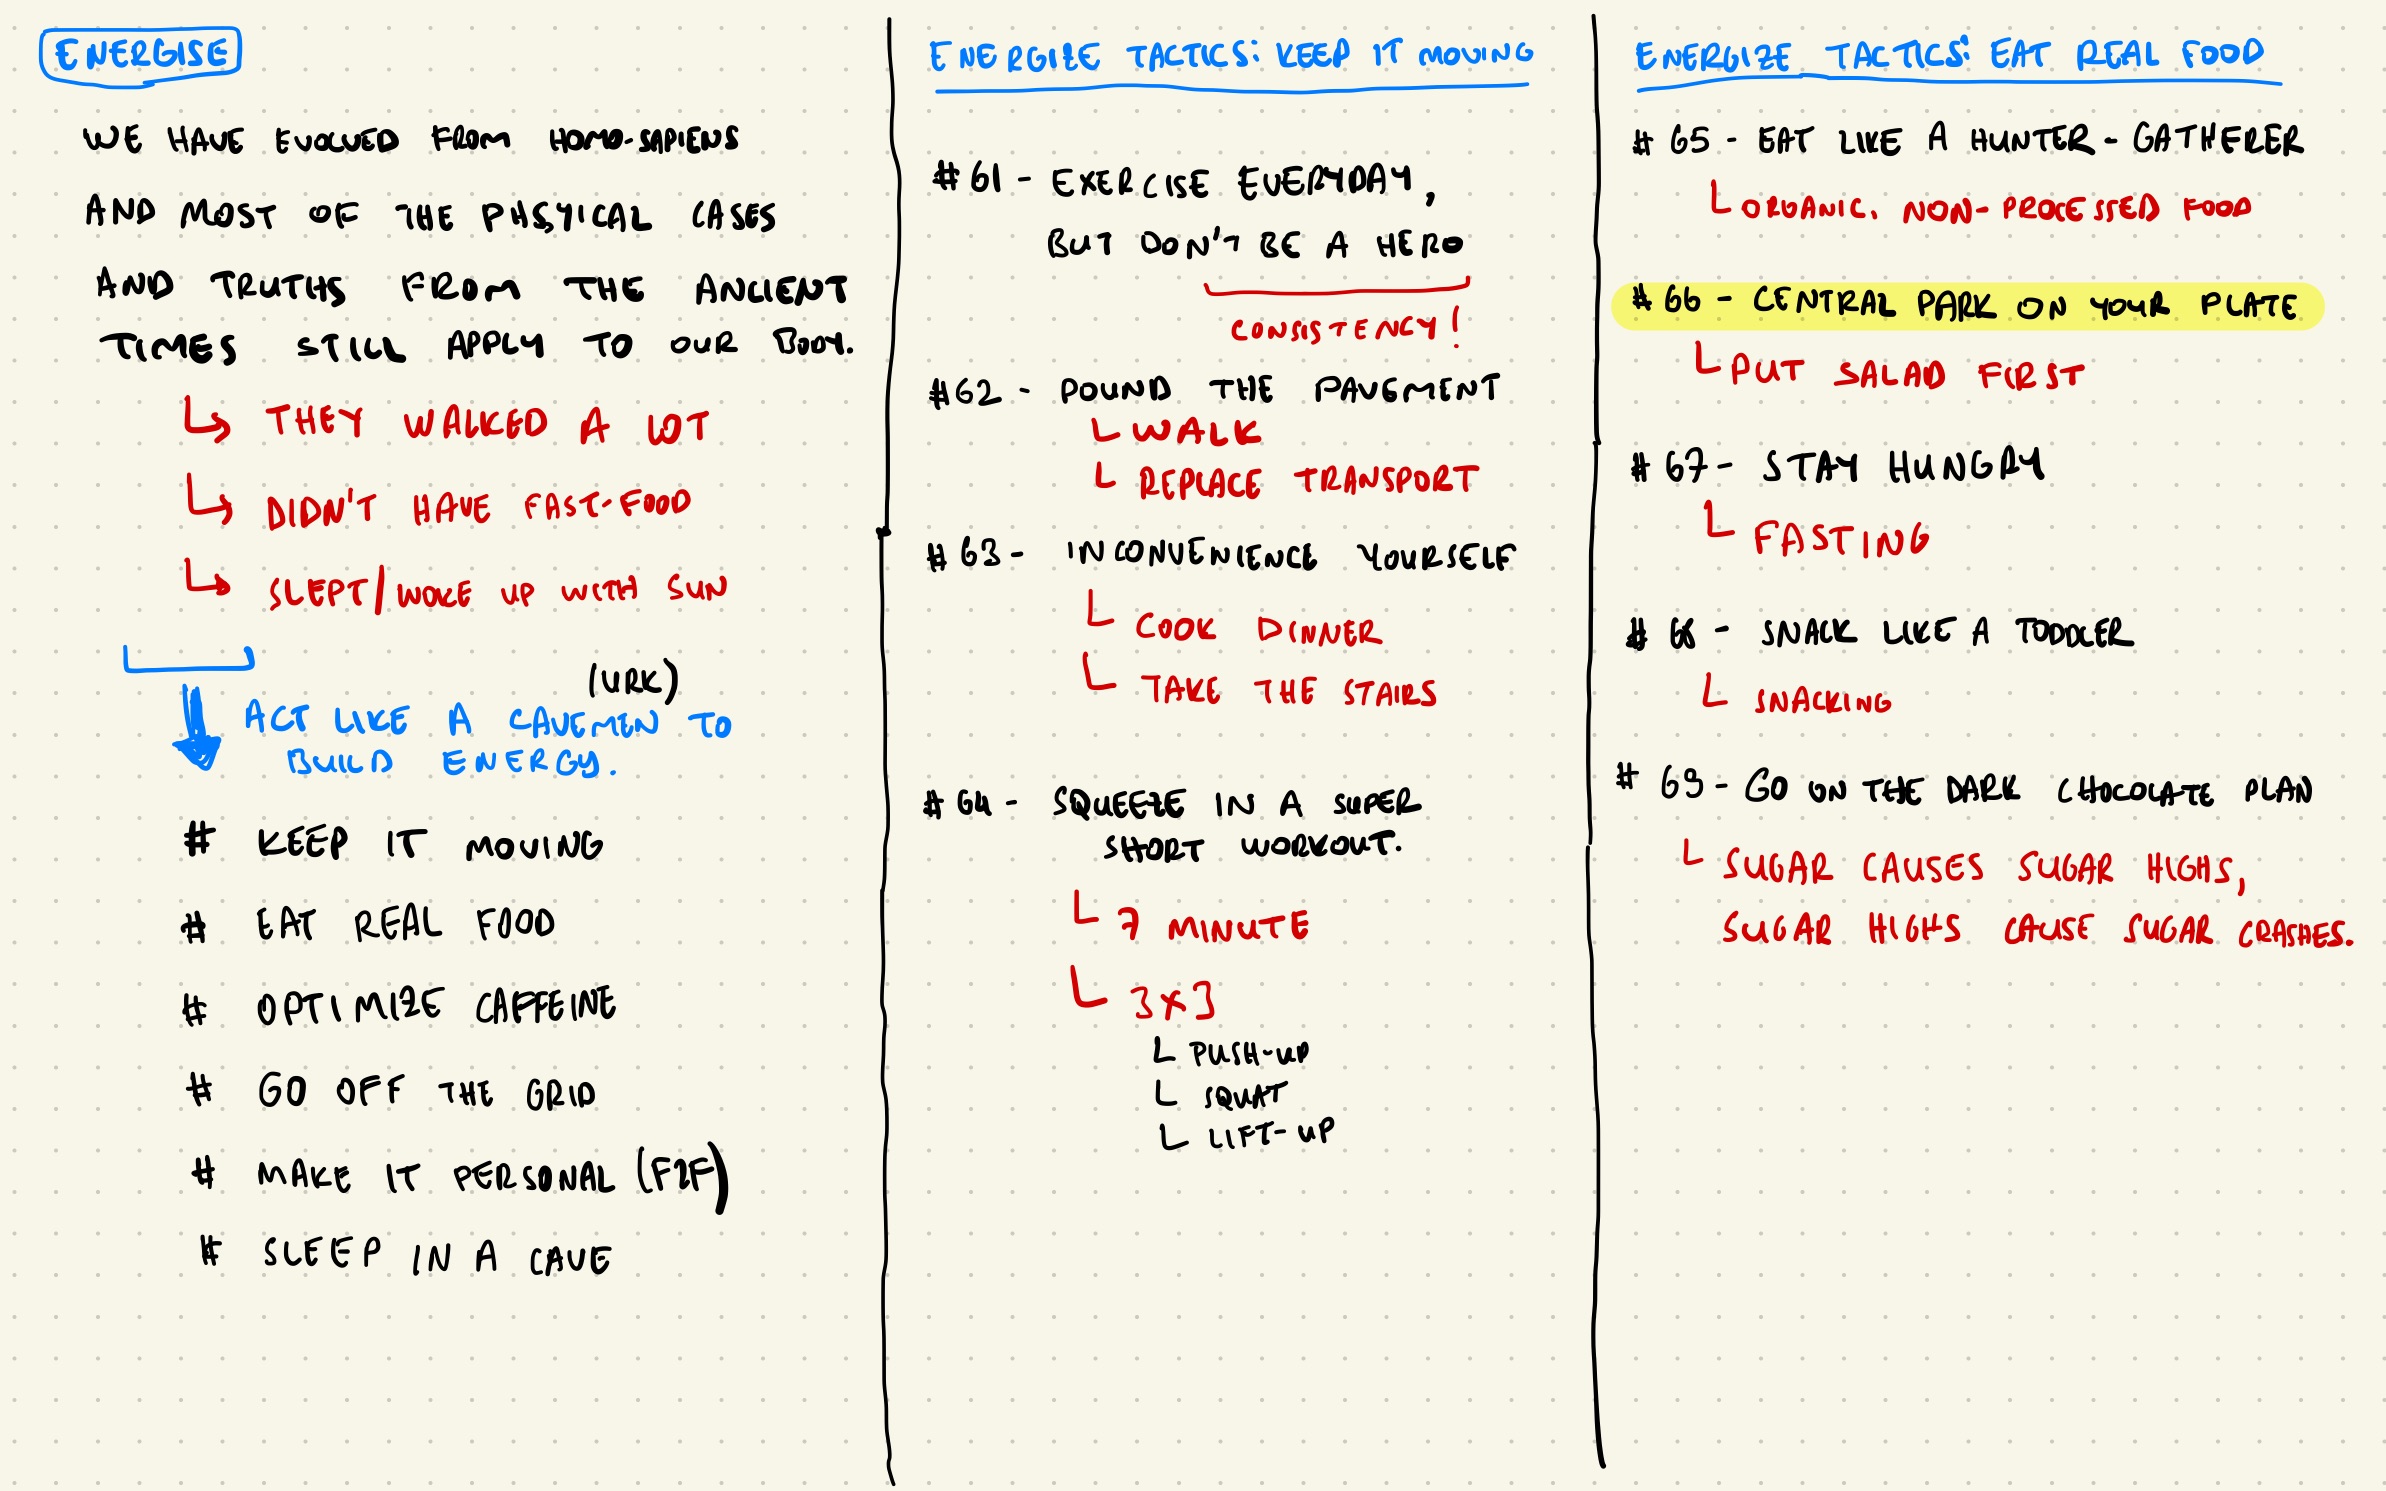 ENERGISE
WE HAVE EVOLVED FROM HOMO-SAPIENS
AND MOST OF THE PHSYICAL CASES
AND TRUTHS FROM THE ANCIENT
TIMES STILL APPLY TO OUR BODY.
THEY WALKED A LOT
DIDN'T HAVE FAST-FOOD
SLEPT/WOKE UP WITH SUN
(URK)
ACT LIKE A CAVEMEN TO
BUILD ENERGY.
# KEEP IT MOVING
# EAT REAL FOOD
# OPTIMIZE CAFFEINE
# GO OFF THE GRID
# MAKE IT PERSONAL (F2F)
# SLEEP IN A CAVE
ENERGIZE TACTICS: KEEP IT MOVING
#61 - EXERCISE EVERYDAY,
BUT DON'T BE A HERO
CONSISTENCY!
#62 - POUND THE PAVEMENT
WALK
REPLACE TRANSPORT
#63 - INCONVENIENCE YOURSELF
COOK DINNER
TAKE THE STAIRS
#64 - SQUEEZE IN A SUPER
SHORT WORKOUT.
7 MINUTE
3x3
PUSH-UP
SQUAT
LIFT-UP
ENERGIZE TACTICS: EAT REAL FOOD
#65 - EAT LIKE A HUNTER-GATHERER
ORGANIC, NON-PROCESSED FOOD
#66 - CENTRAL PARK ON YOUR PLATE
PUT SALAD FIRST
#67 - STAY HUNGRY
FASTING
#68 - SNACK LIKE A TODDLER
SNACKING
#69 - GO ON THE DARK CHOCOLATE PLAN
SUGAR CAUSES SUGAR HIGHS,
SUGAR HIGHS CAUSE SUGAR CRASHES.